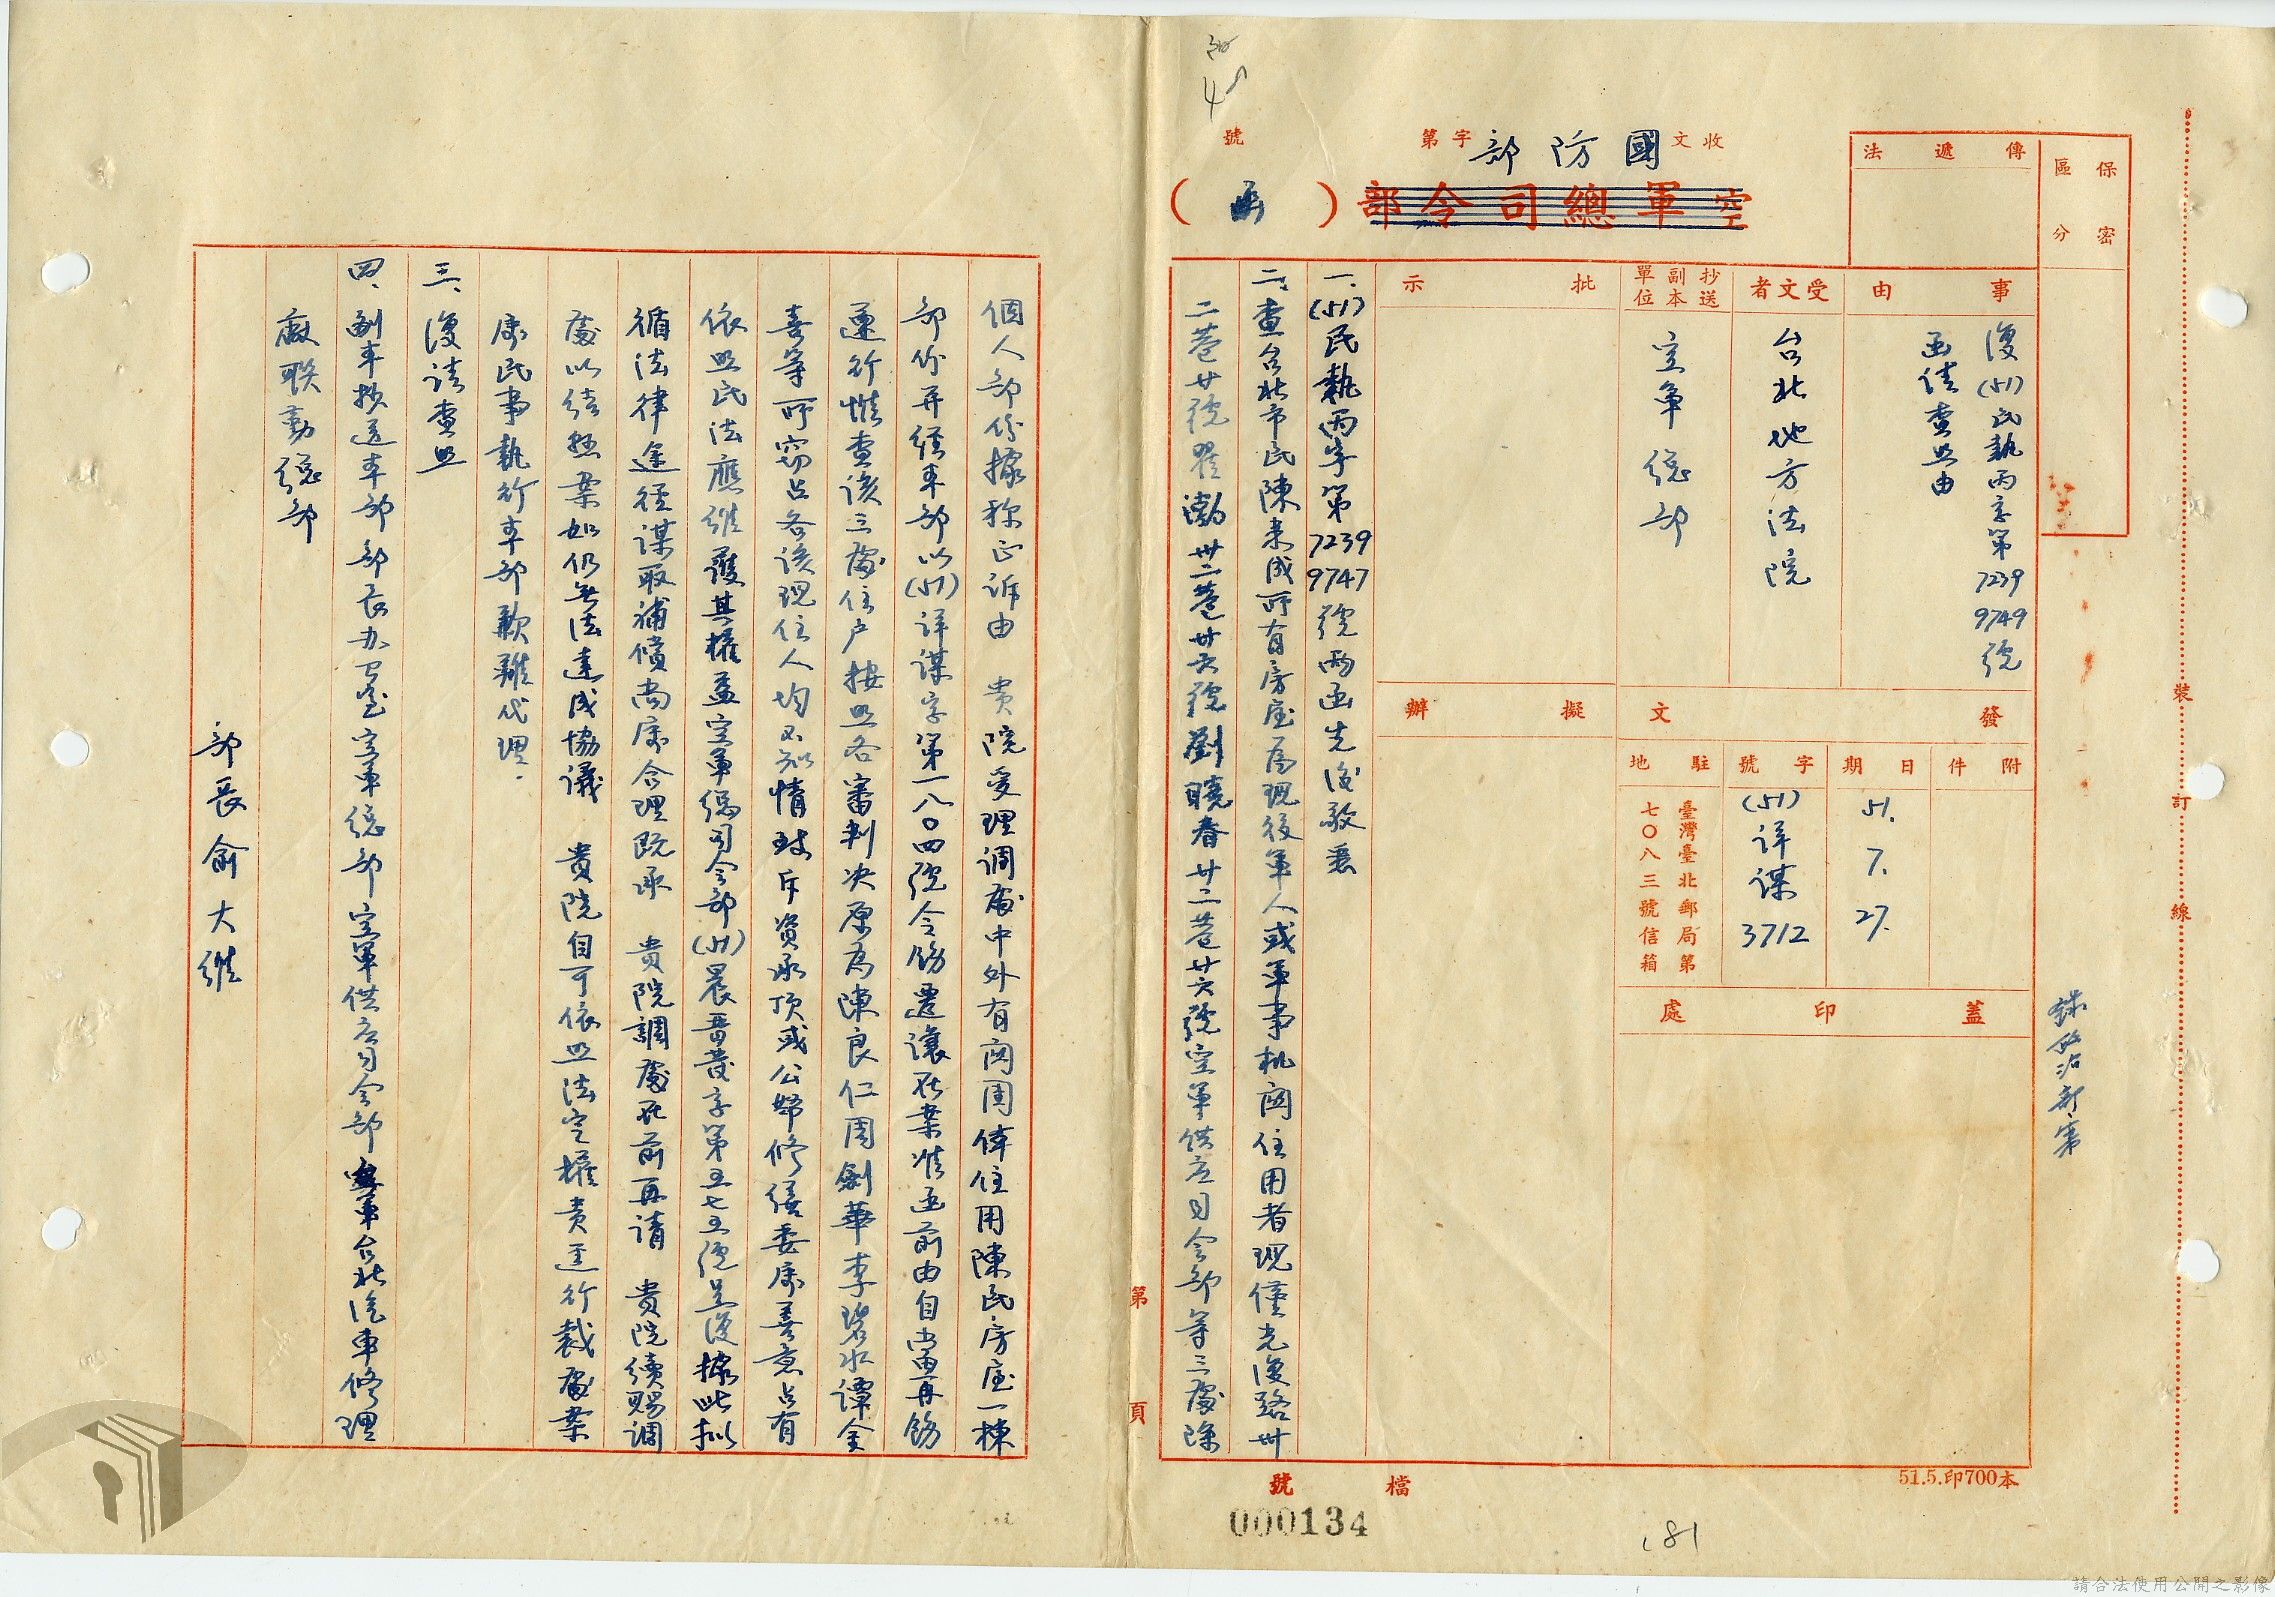 保密
區分
傳遞法
收文 字第 號
國防部
空軍總司令部
（函）
事由
復(51)民執丙字第7239 9749號
函請查照由
受文者
台北地方法院
抄送副本單位
空軍總部
批示
擬辦
發文
附件
日期
51. 7. 27.
字號
(51)詳謀3712
駐地
臺灣臺北郵局第
七〇八三號信箱
蓋印處
一、(51)民執丙字第7239 9747號兩函先後敬悉
二、查台北市民陳来成所有房屋為現役軍人或軍事机關住用者現僅光復路卅
二巷廿號翟渤卅二巷廿六號劉曉春廿二巷廿六號空軍供应司令部等三處除
個人部份據称正訴由 貴院受理調處中外有関周偉住用陳民房屋一棟
部份并經本部以(51)詳謀字第一八〇四號令飭遷讓在案准函前由自當再飭
遵行惟查該三處住户按照各審判决原為陳良仁周劍華李碧水譚金
喜等所窃占各該現住人均不知情致斥資承頂或公帑修繕委屬善意占有
依照民法應維護其權益空軍總司令部(51)晨晋發字第五七五號呈復據此拟
循法律途徑謀取補償尚屬合理既承 貴院調處在前再請 貴院續賜調
處以結懸案如仍無法達成協議 貴院自可依照法定權責逕行裁處案
屬民事執行本部歉難代理.
三、復請查照
四、副本抄送本部部長办公室空軍總部空軍供应司令部空軍台北汽車修理
廠联勤總部
部長俞大維
第 頁
檔號
000134
181
51.5.印700本
裝訂線
請合法使用公開之影像